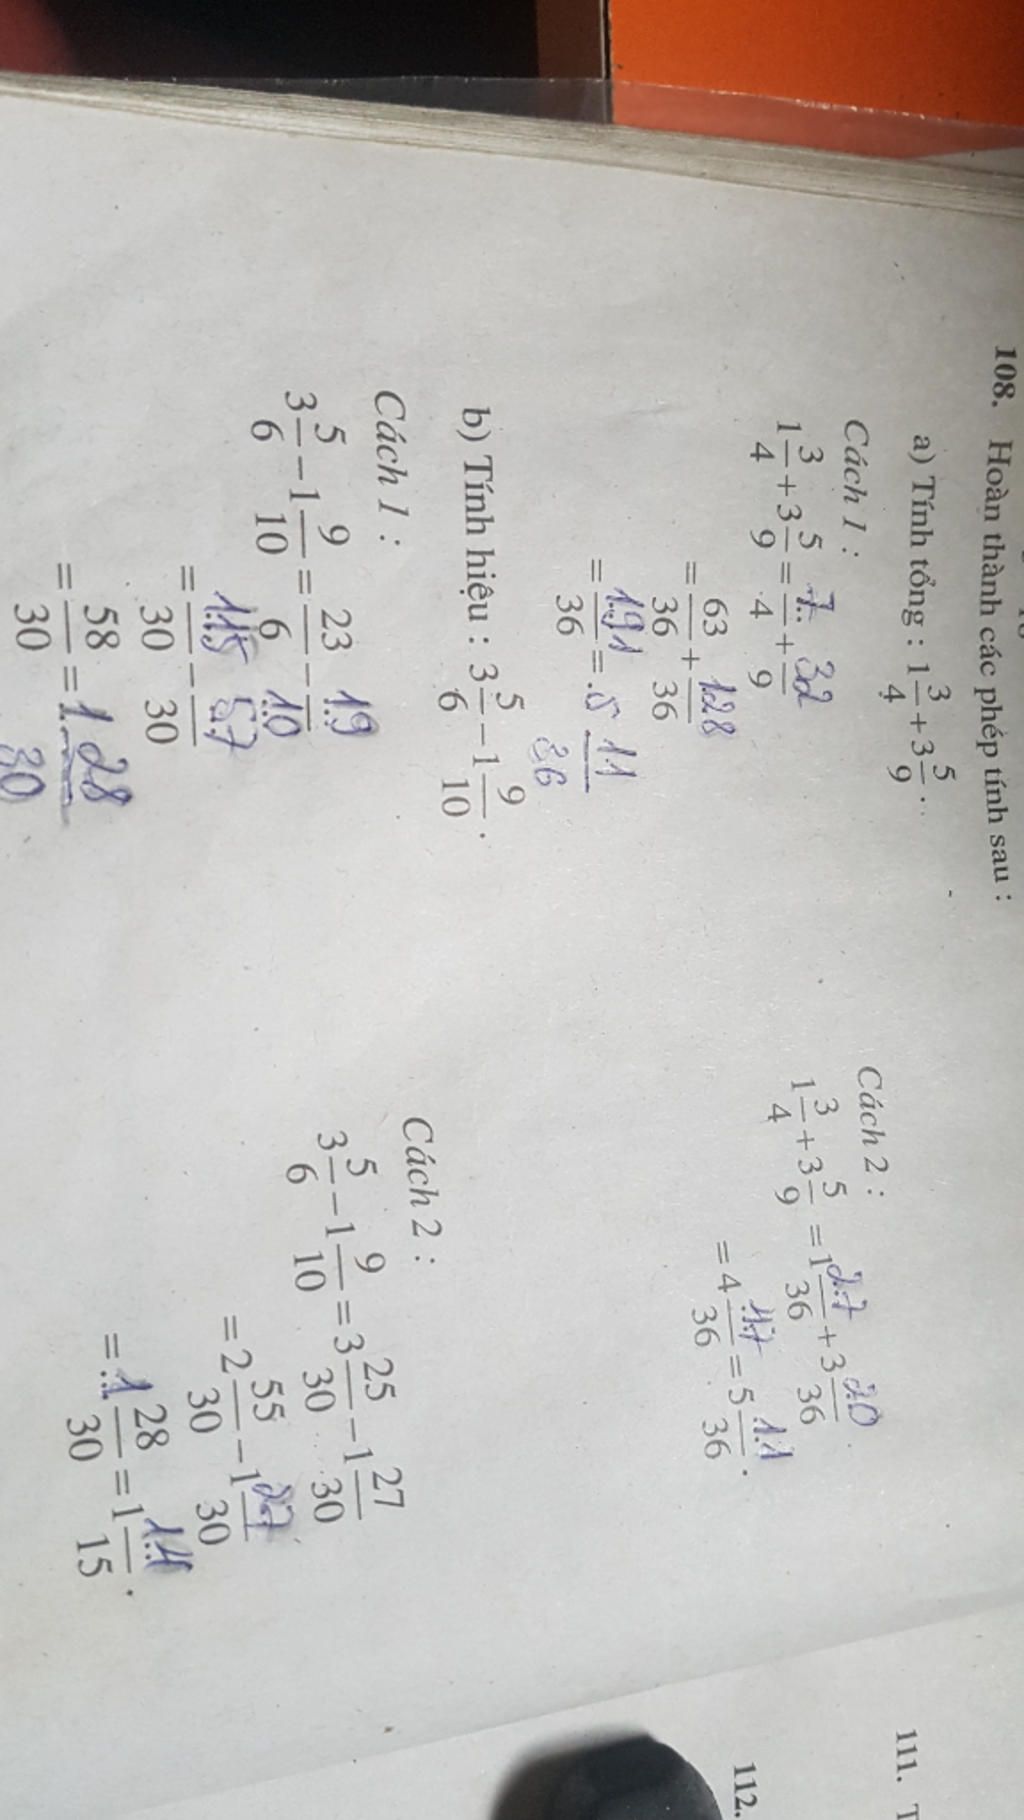 108. Hoàn thành các phép tính sau :
a) Tính tổng : 1 3/4 + 3 5/9 ..
Cách 1 :
1 3/4 + 3 5/9 = 7/4 + 32/9
= 63/36 + 128/36
= 191/36 = 5 11/36
Cách 2 :
1 3/4 + 3 5/9 = 1 27/36 + 3 20/36
= 4 47/36 = 5 11/36 .
b) Tính hiệu : 3 5/6 − 1 9/10 .
Cách 1 :
3 5/6 − 1 9/10 = 23/6 − 19/10
= 115/30 − 57/30
= 58/30 = 1 28/30
Cách 2 :
3 5/6 − 1 9/10 = 3 25/30 − 1 27/30
= 2 55/30 − 1 27/30
= 1 28/30 = 1 14/15 .
111. T
112.